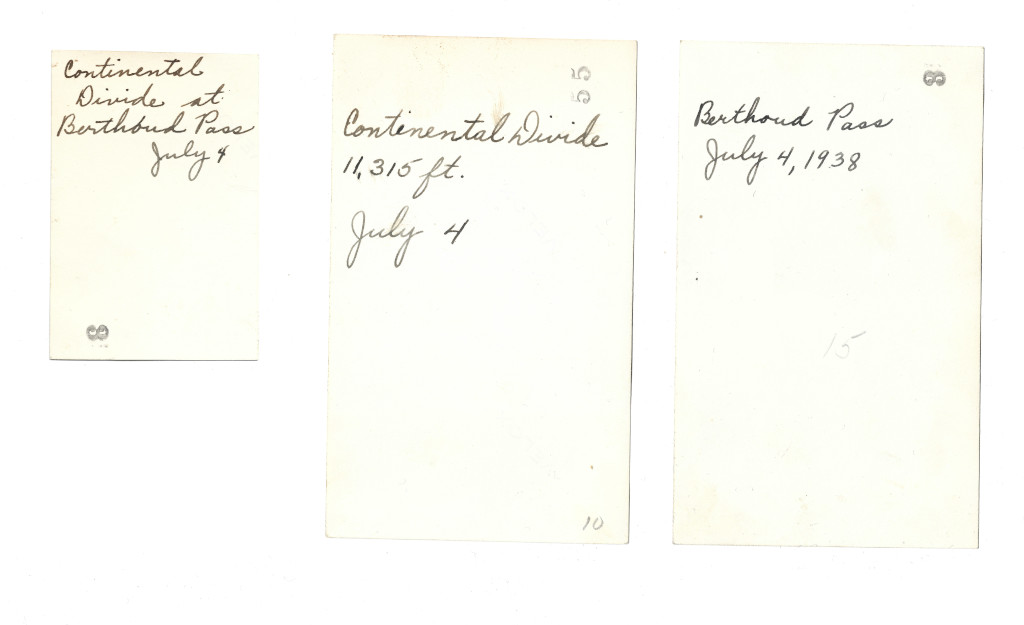 Continental
Divide at
Berthoud Pass
July 4
8
55
Continental Divide
11,315 ft.
July 4
10
8
Berthoud Pass
July 4, 1938
15